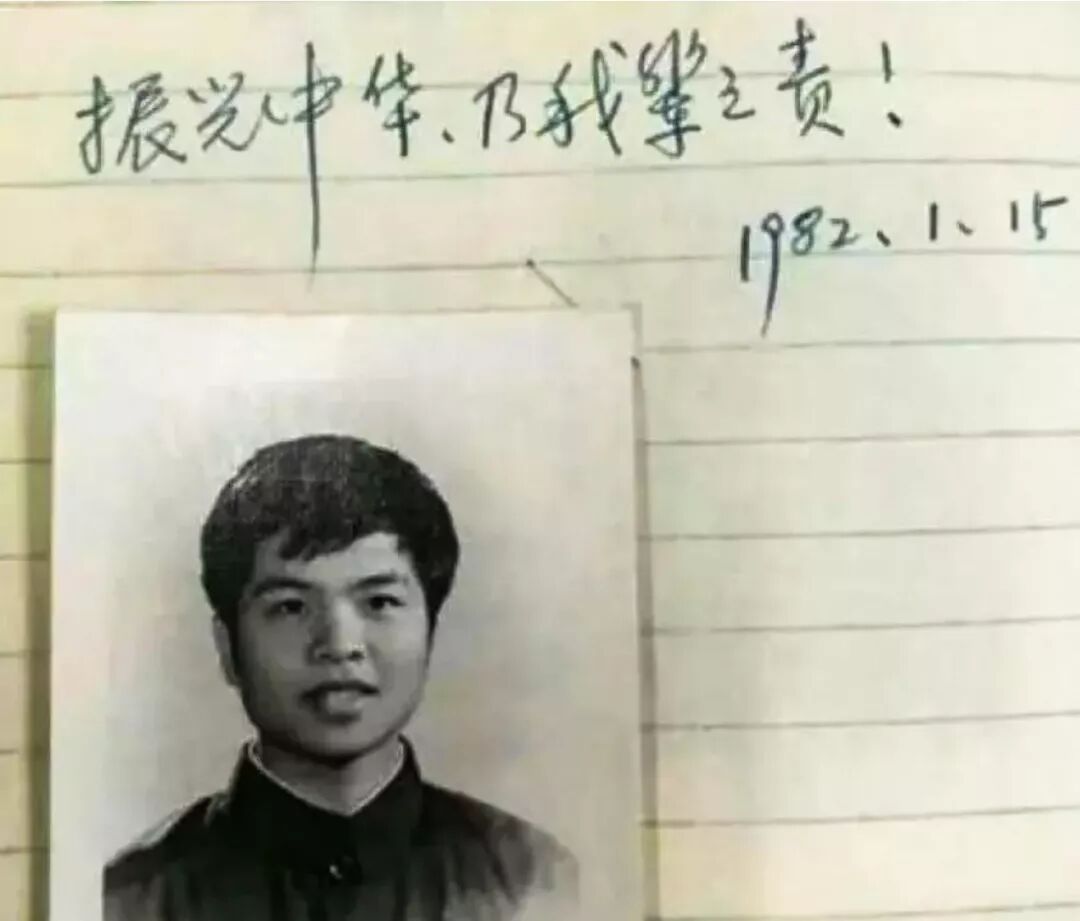 振兴中华、乃我辈之责!
1982、1、15